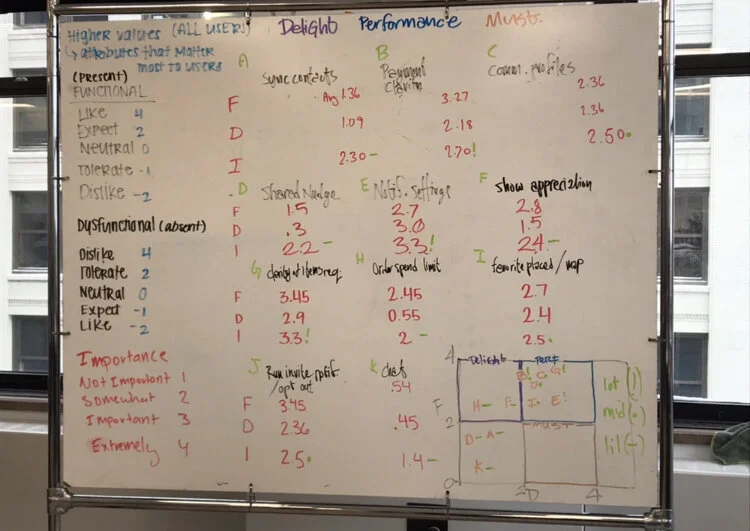 Higher values (ALL USERS)
↳ attributes that matter
most to users
Delight Performance Must.
(present)
FUNCTIONAL
LIKE 4
Expect 2
Neutral 0
TOLERATE -1
Dislike -2
Dysfunctional (absent)
Dislike 4
TOLERATE 2
Neutral 0
Expect -1
Like -2
Importance
Not Important 1
Somewhat 2
Important 3
Extremely 4
A
Sync contacts
F Avg 1.36
D 1.09
I 2.30 -
B
Payment
3.27
2.18
2.70!
C
Comm. profiles
2.36
2.36
2.50•
D
Shared Nudge
F 1.5
D .3
I 2.2 -
E
Notif. settings
2.7
3.0
3.3!
F
Show appreciation
2.8
1.5
2.4 -
G
clarity of items req.
F 3.45
D 2.9
I 3.3!
H
Order spend limit
2.45
0.55
2 -
I
favorite placed/map
2.7
2.4
2.5•
J
Run invite notif.
/ opt out
F 3.45
D 2.36
I 2.5•
K
chats
.54
.45
1.4 -
4 Delight perf
B! C• G!
J•
F H- F- I• E!
2 Must
D- A-
K-
0 2 D 4
lot (!)
mid (•)
lil (-)